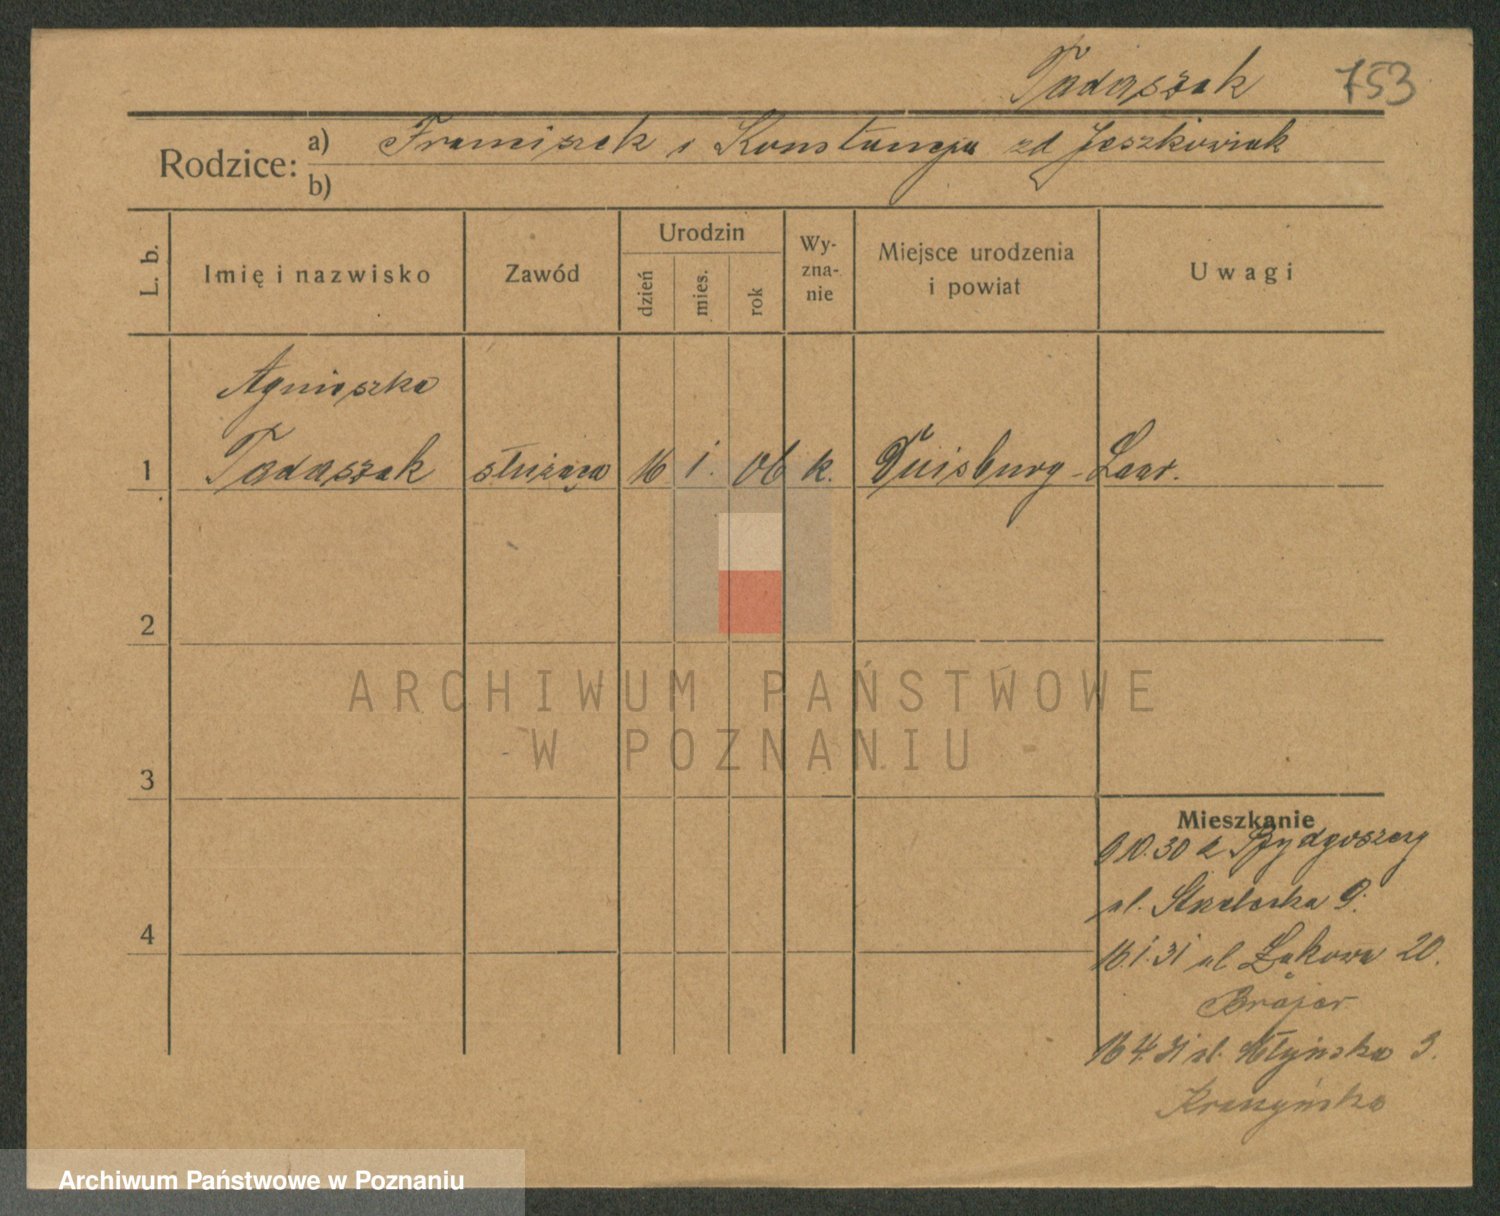 Tadaszak 753
Rodzice: a) Franciszek i Konstancja zd Jeszkowiak
b)
L. b. Imię i nazwisko Zawód Urodzin dzień mies. rok Wyznanie Miejsce urodzenia i powiat Uwagi
Agnieszka
1 Tadaszak służąca 16 i. 06 k. Duisburg - Laar.
2
ARCHIWUM PAŃSTWOWE
W POZNANIU -
3
Mieszkanie
9 10.30 z Bydgoszczy
ul. Strzelecka 9.
4
16.i.31 ul Łąkowa 20.
Brajer
16 4.31 ul. Młyńska 3.
Archiwum Państwowe w Poznaniu